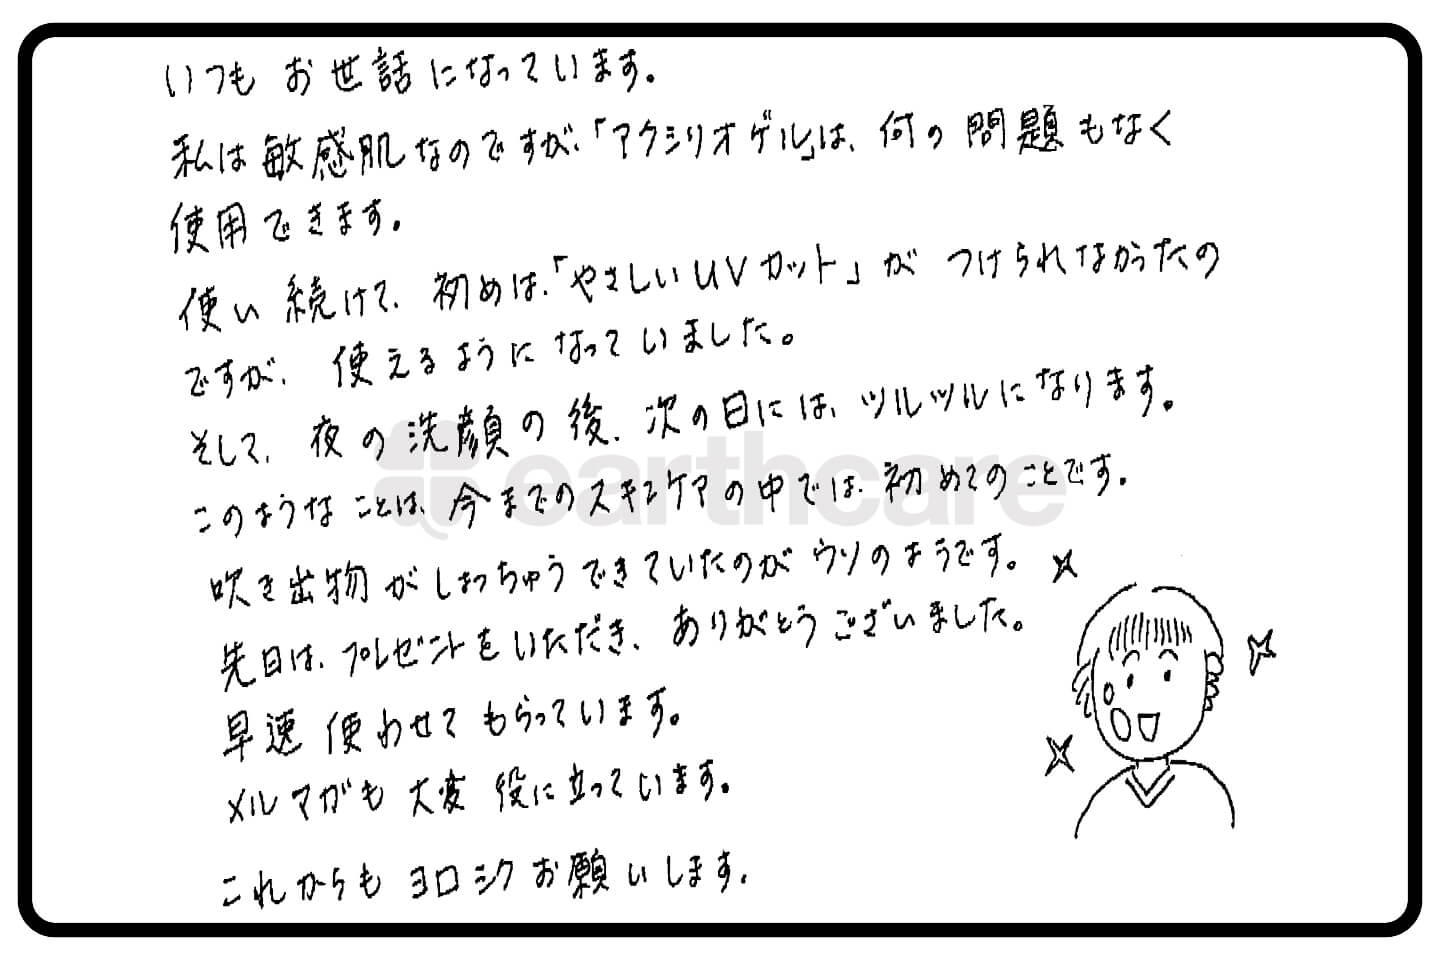 いつもお世話になっています。
私は敏感肌なのですが、「アクシリオゲル」は、何の問題もなく
使用できます。
使い続けて、初めは、「やさしいUVカット」がつけられなかったの
ですが、使えるようになっていました。
そして、夜の洗顔の後、次の日には、ツルツルになります。
このようなことは、今までのスキンケアの中では、初めてのことです。
earthcare
吹き出物がしょっちゅうできていたのがウソのようです。
先日は、プレゼントをいただき、ありがとうございました。
早速使わせてもらっています。
メルマガも大変役に立っています。
これからもヨロシクお願いします。